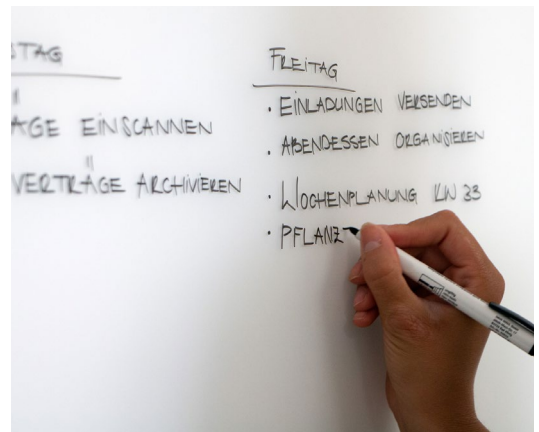 STAG
ÄGE EINSCANNEN
VERTRÄGE ARCHIVIEREN
FREITAG
· EINLADUNGEN VERSENDEN
· ABENDESSEN ORGANISIEREN
· WOCHENPLANUNG KW 33
· PFLANZ